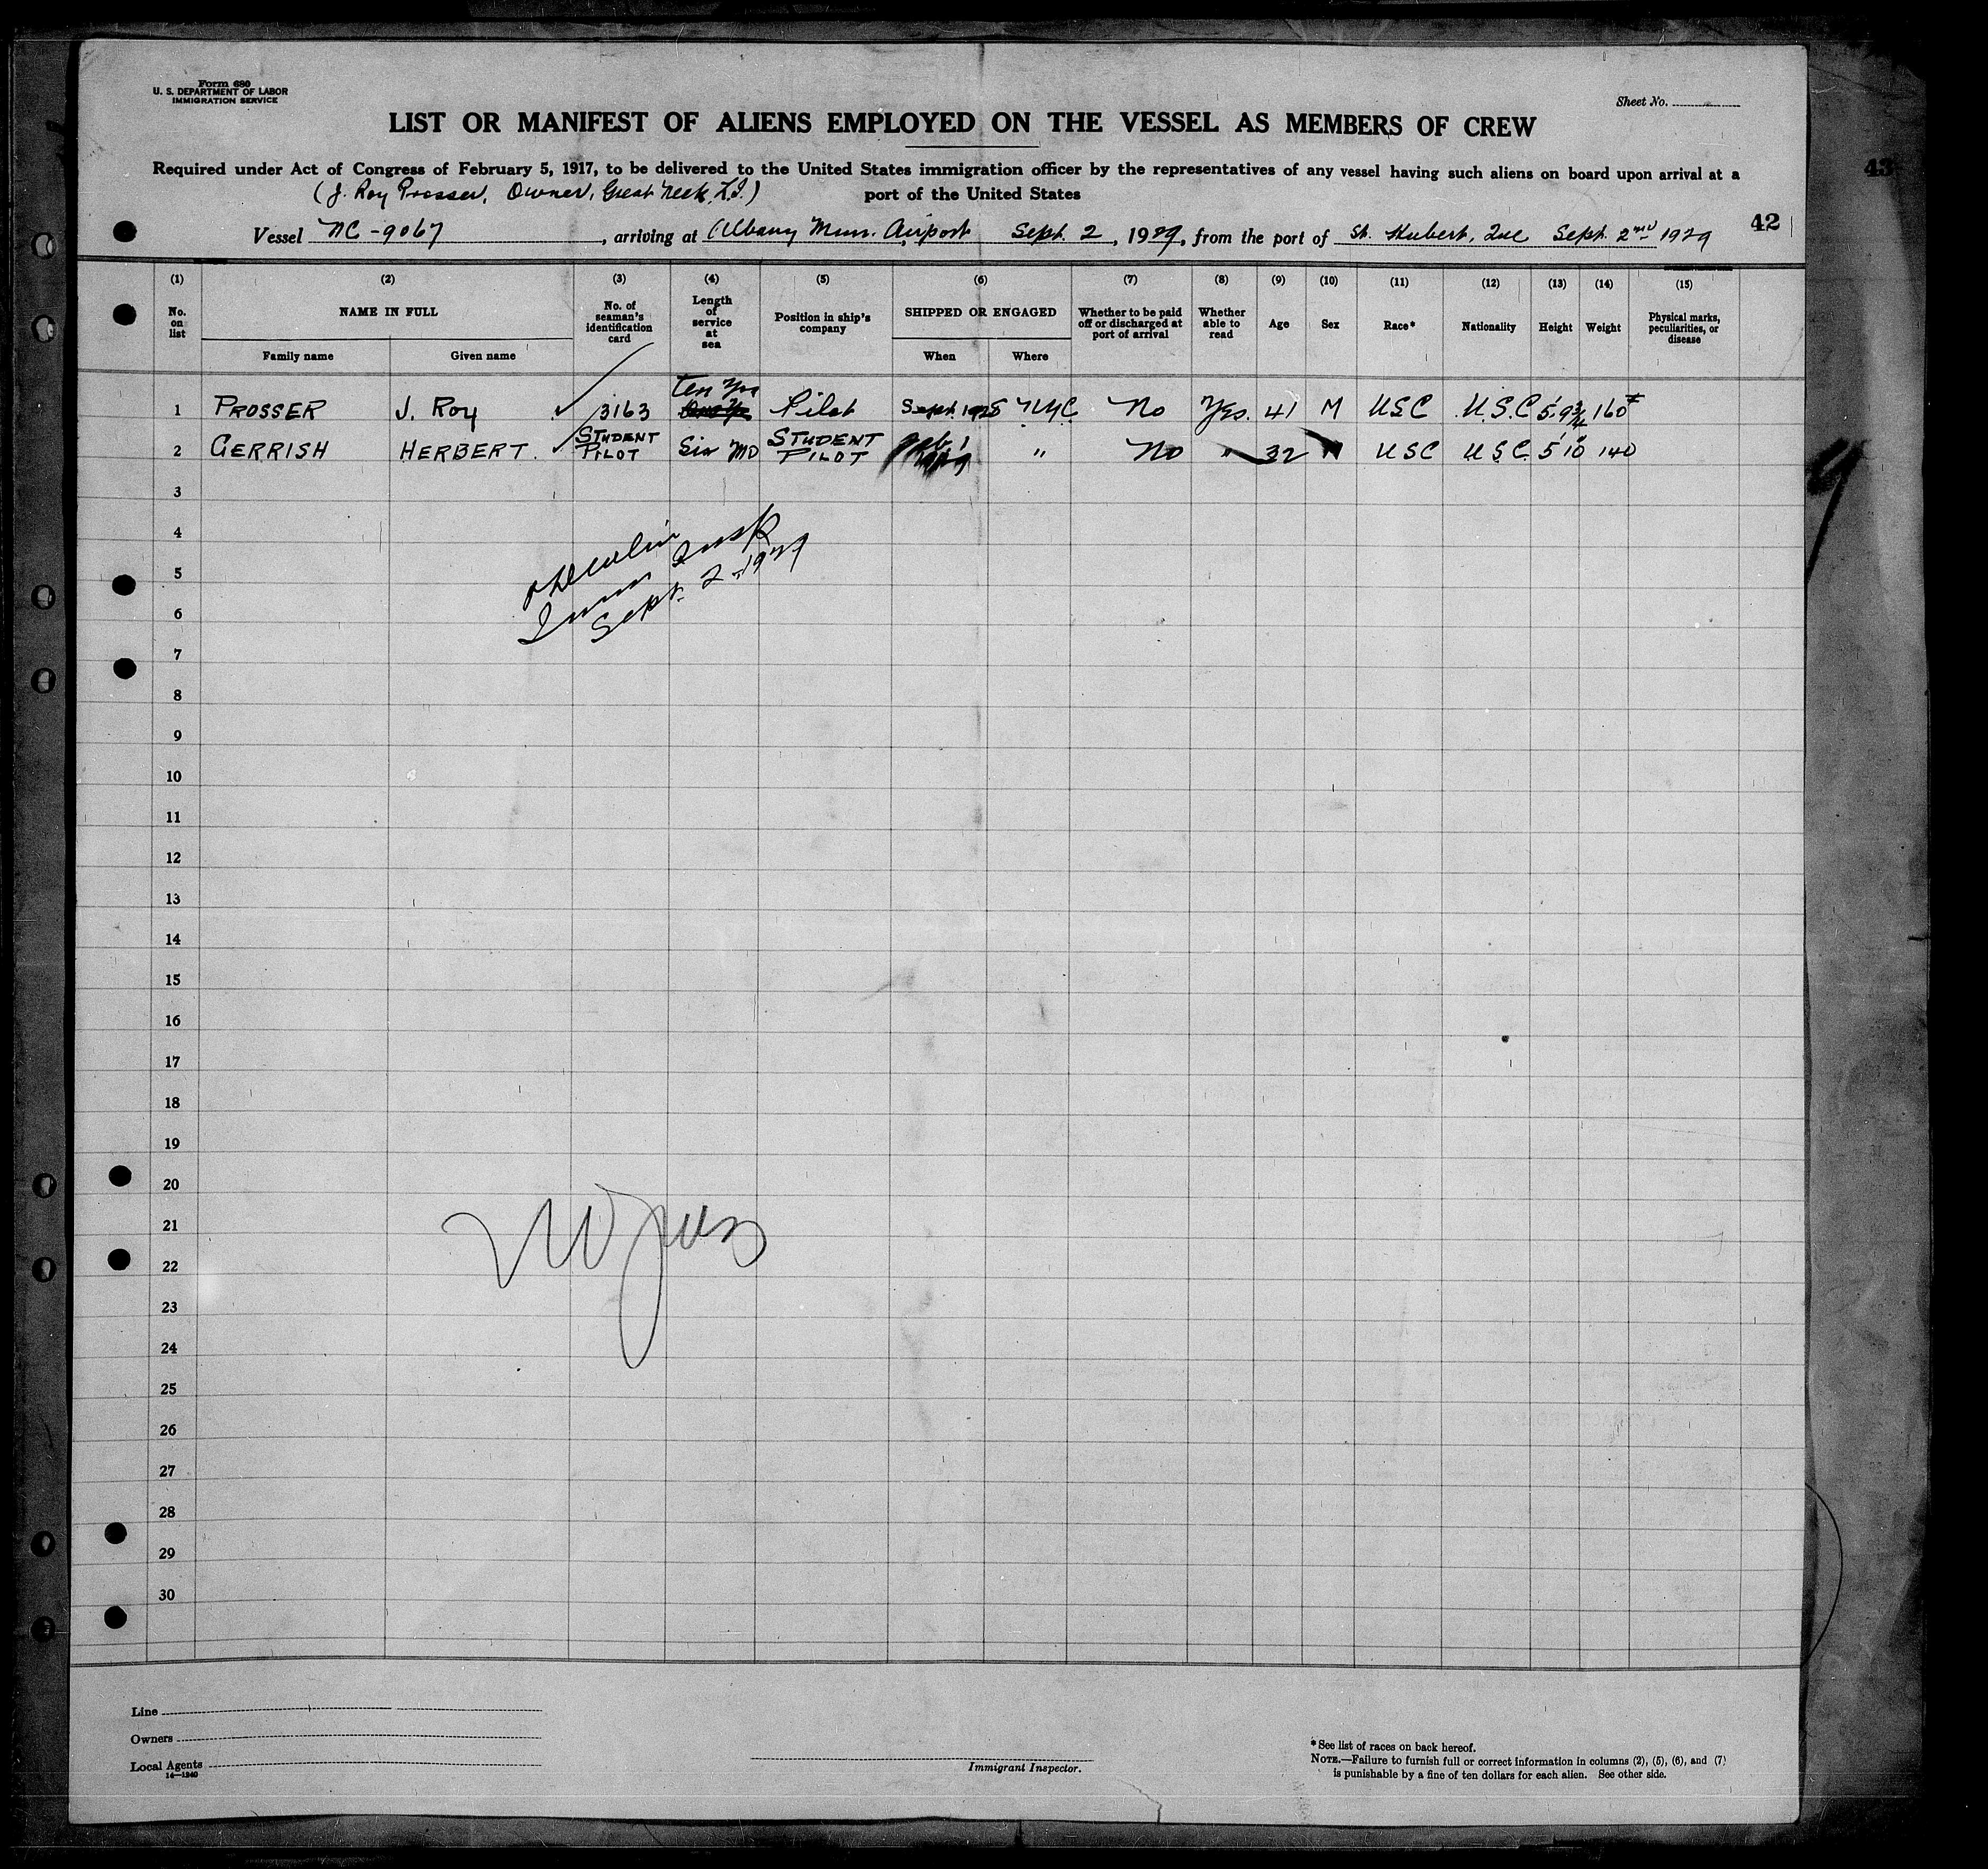 Form 680
U. S. DEPARTMENT OF LABOR
IMMIGRATION SERVICE
Sheet No.
LIST OR MANIFEST OF ALIENS EMPLOYED ON THE VESSEL AS MEMBERS OF CREW
Required under Act of Congress of February 5, 1917, to be delivered to the United States immigration officer by the representatives of any vessel having such aliens on board upon arrival at a
port of the United States
(J. Roy Prosser, Owner, Great Neck, L.I.)
43
42
Vessel NC-9067, arriving at Albany Mun. Airport Sept. 2, 1929, from the port of St. Hubert, Que Sept. 2nd 1929
(1) (2) (3) (4) (5) (6) (7) (8) (9) (10) (11) (12) (13) (14) (15)
No. on list
NAME IN FULL
Family name
Given name
No. of seaman's identification card
Length of service at sea
Position in ship's company
SHIPPED OR ENGAGED
When
Where
Whether to be paid off or discharged at port of arrival
Whether able to read
Age
Sex
Race*
Nationality
Height
Weight
Physical marks, peculiarities, or disease
Ten Yrs
1 PROSSER J. Roy 3163 Pilot Sept. 1925 NYC No Yes. 41 M USC U.S.C 5' 9 3/4 160#
2 GERRISH HERBERT. STUDENT PILOT Six Mo STUDENT PILOT " No " 32 M USC U.S.C. 5' 10" 140
3
4
5
6
7
8
9
10
11
12
13
14
15
16
17
18
19
20
21
22
23
24
25
26
27
28
29
30
Imm Insp
Sept. 2-1929
Line
Owners
Local Agents
14—1240
Immigrant Inspector.
*See list of races on back hereof.
NOTE.—Failure to furnish full or correct information in columns (2), (5), (6), and (7)
is punishable by a fine of ten dollars for each alien. See other side.